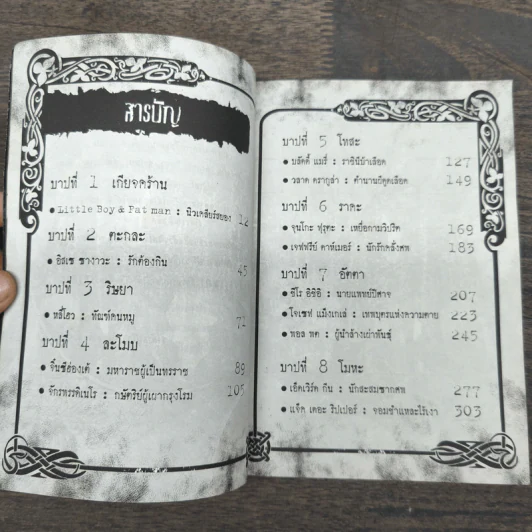 สารบัญ
บาปที่ 1 เกียจคร้าน
• Little Boy & Fat man : นิวเคลียร์สยอง 12
บาปที่ 2 ตะกละ
• อิสเซ ซางาวะ : รักต้องกิน 45
บาปที่ 3 ริษยา
• หลี่โฮว : ทัณฑ์คนหมู 71
บาปที่ 4 ละโมบ
• จิ๋นซีฮ่องเต้ : มหาราชผู้เป็นทรราช 89
• จักรพรรดิเนโร : กษัตริย์ผู้เผากรุงโรม 105
บาปที่ 5 โทสะ
• บลัดดี้ แมรี่ : ราชินีบ้าเลือด 127
• วลาด ดรากูล่า : ตำนานผีดูดเลือด 149
บาปที่ 6 ราคะ
• จุนโกะ ฟุรุตะ : เหยื่อกามวิปริต 169
• เจฟฟรีย์ ดาห์เมอร์ : นักรักคลั่งศพ 183
บาปที่ 7 อัตตา
• ชิโร อิชิอิ : นายแพทย์ปีศาจ 207
• โจเซฟ แม็งเกเล่ : เทพบุตรแห่งความตาย 223
• พอล พต : ผู้นำล้างเผ่าพันธุ์ 245
บาปที่ 8 โมหะ
• เอ็ดเวิร์ด กีน : นักสะสมซากศพ 277
• แจ็ค เดอะ ริปเปอร์ : จอมชำแหละไร้เงา 303